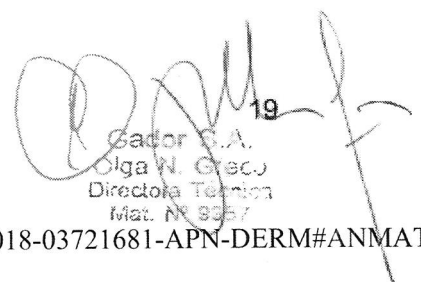 19
Gador S.A.
Olga N. Greco
Directora Técnica
Mat. Nº 9357
018-03721681-APN-DERM#ANMAT